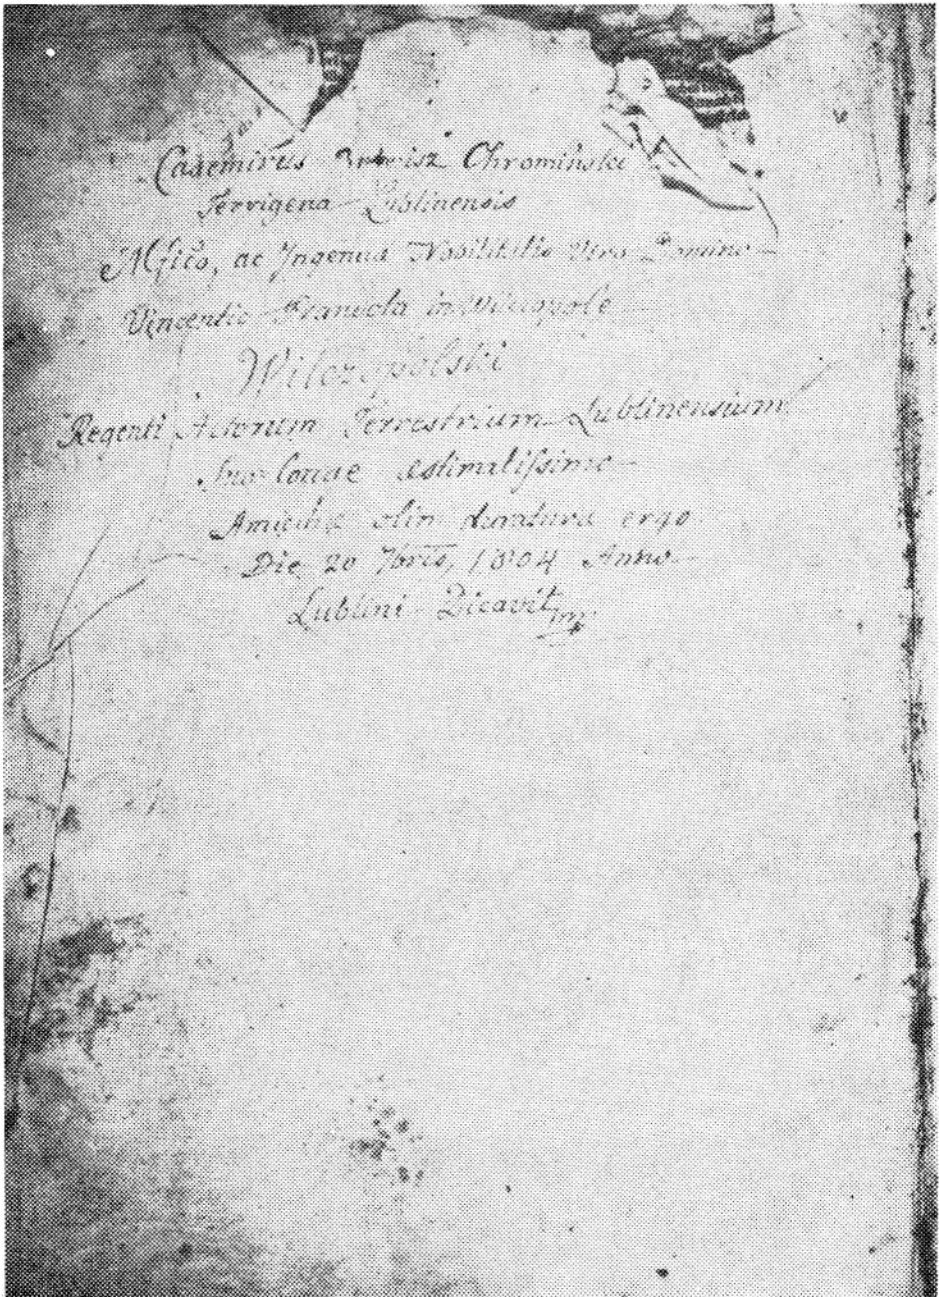 Casemirus Chromiński
Terrigena Lublinensis
Mfico, ac Ingenua Nobilitatis Viro Domino
Vincentio in Wilczopole
Wilczopolski
Regenti Actorum Terrestrium Lublinensium
suo estimatissimo
Amicitiæ olim duratura ergo
Die 20 7bris, 1804 Anno
Lublini Dicavit